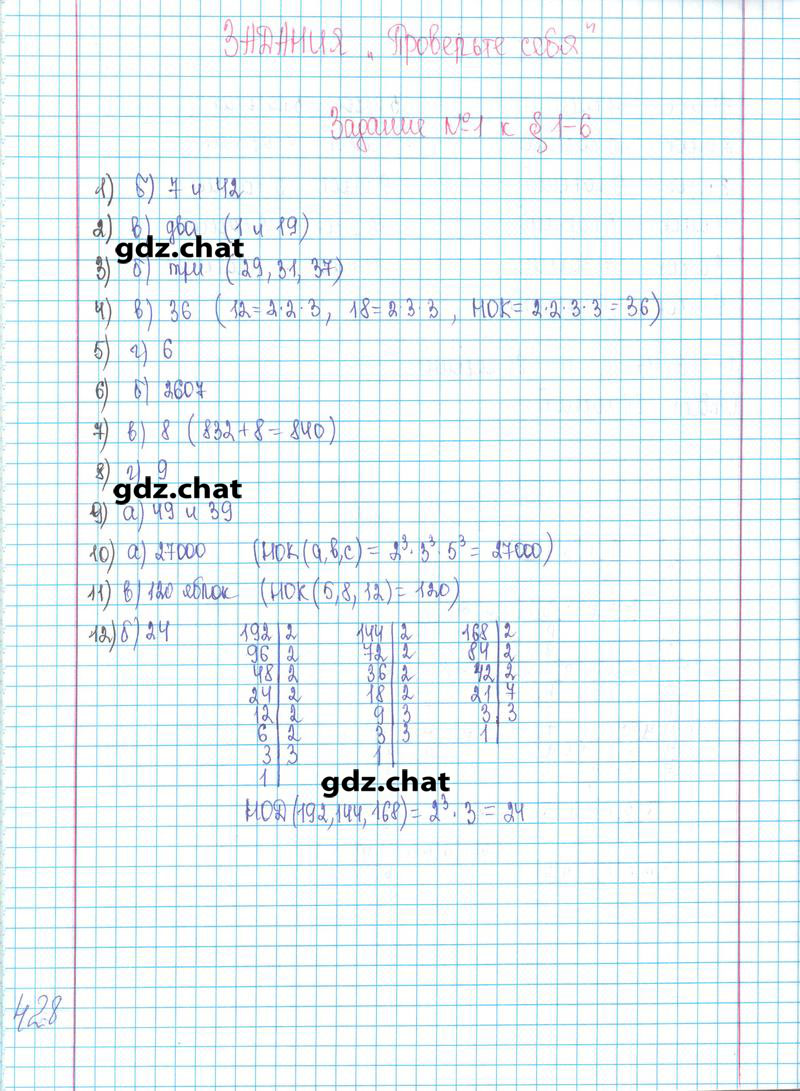 ЗАДАНИЯ „Проверьте себя"
Задание №1 к § 1-6
1) б) 7 и 42
2) в) два (1 и 19)
gdz.chat
3) б) три (29, 31, 37)
4) в) 36 (12=2·2·3, 18=2·3·3, НОК=2·2·3·3=36)
5) г) 6
6) б) 2607
7) в) 8 (832+8=840)
8) г) 9
gdz.chat
9) а) 49 и 39
10) а) 27000 (НОК(а,в,с) = 2³·3³·5³ = 27000)
11) в) 120 яблок (НОК(5,8,12)=120)
12) б) 24 192|2 144|2 168|2
96|2 72|2 84|2
48|2 36|2 42|2
24|2 18|2 21|7
12|2 9|3 3|3
6|2 3|3 1|
3|3 1|
1|
gdz.chat
НОД(192,144,168)=2³·3=24
428